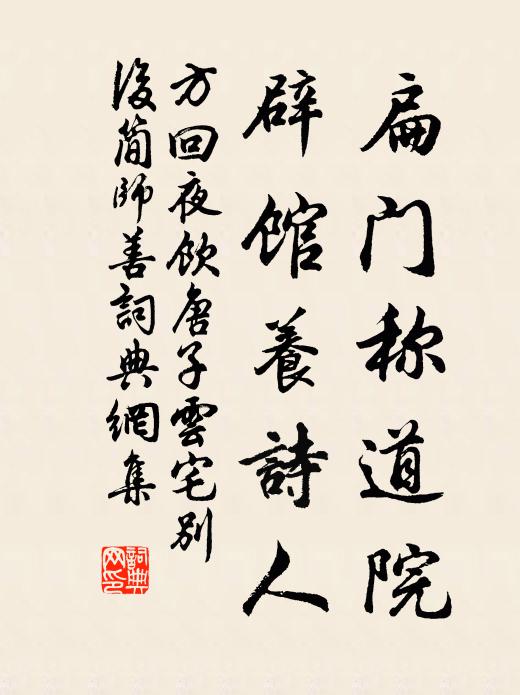 扁门称道院
辟馆養詩人
方回夜飲唐子雲宅别
後簡師善詞典網集
詞典网印